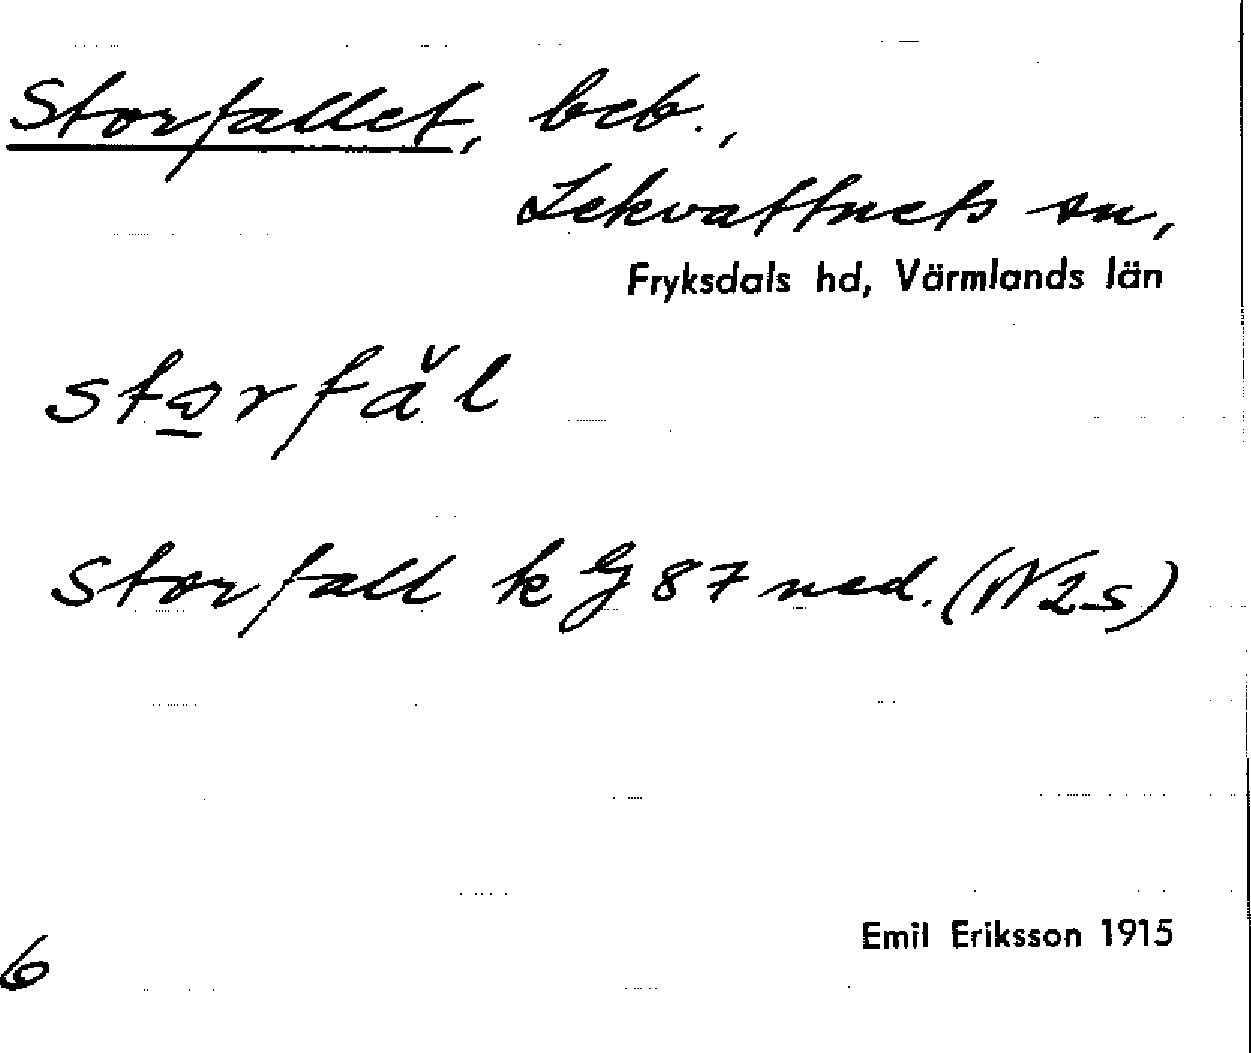 Storfallet, beb.,
Lekvattnets sn,
Fryksdals hd, Värmlands län
storfǎl
Storfall k G 87 ned. (N2s)
Emil Eriksson 1915
6